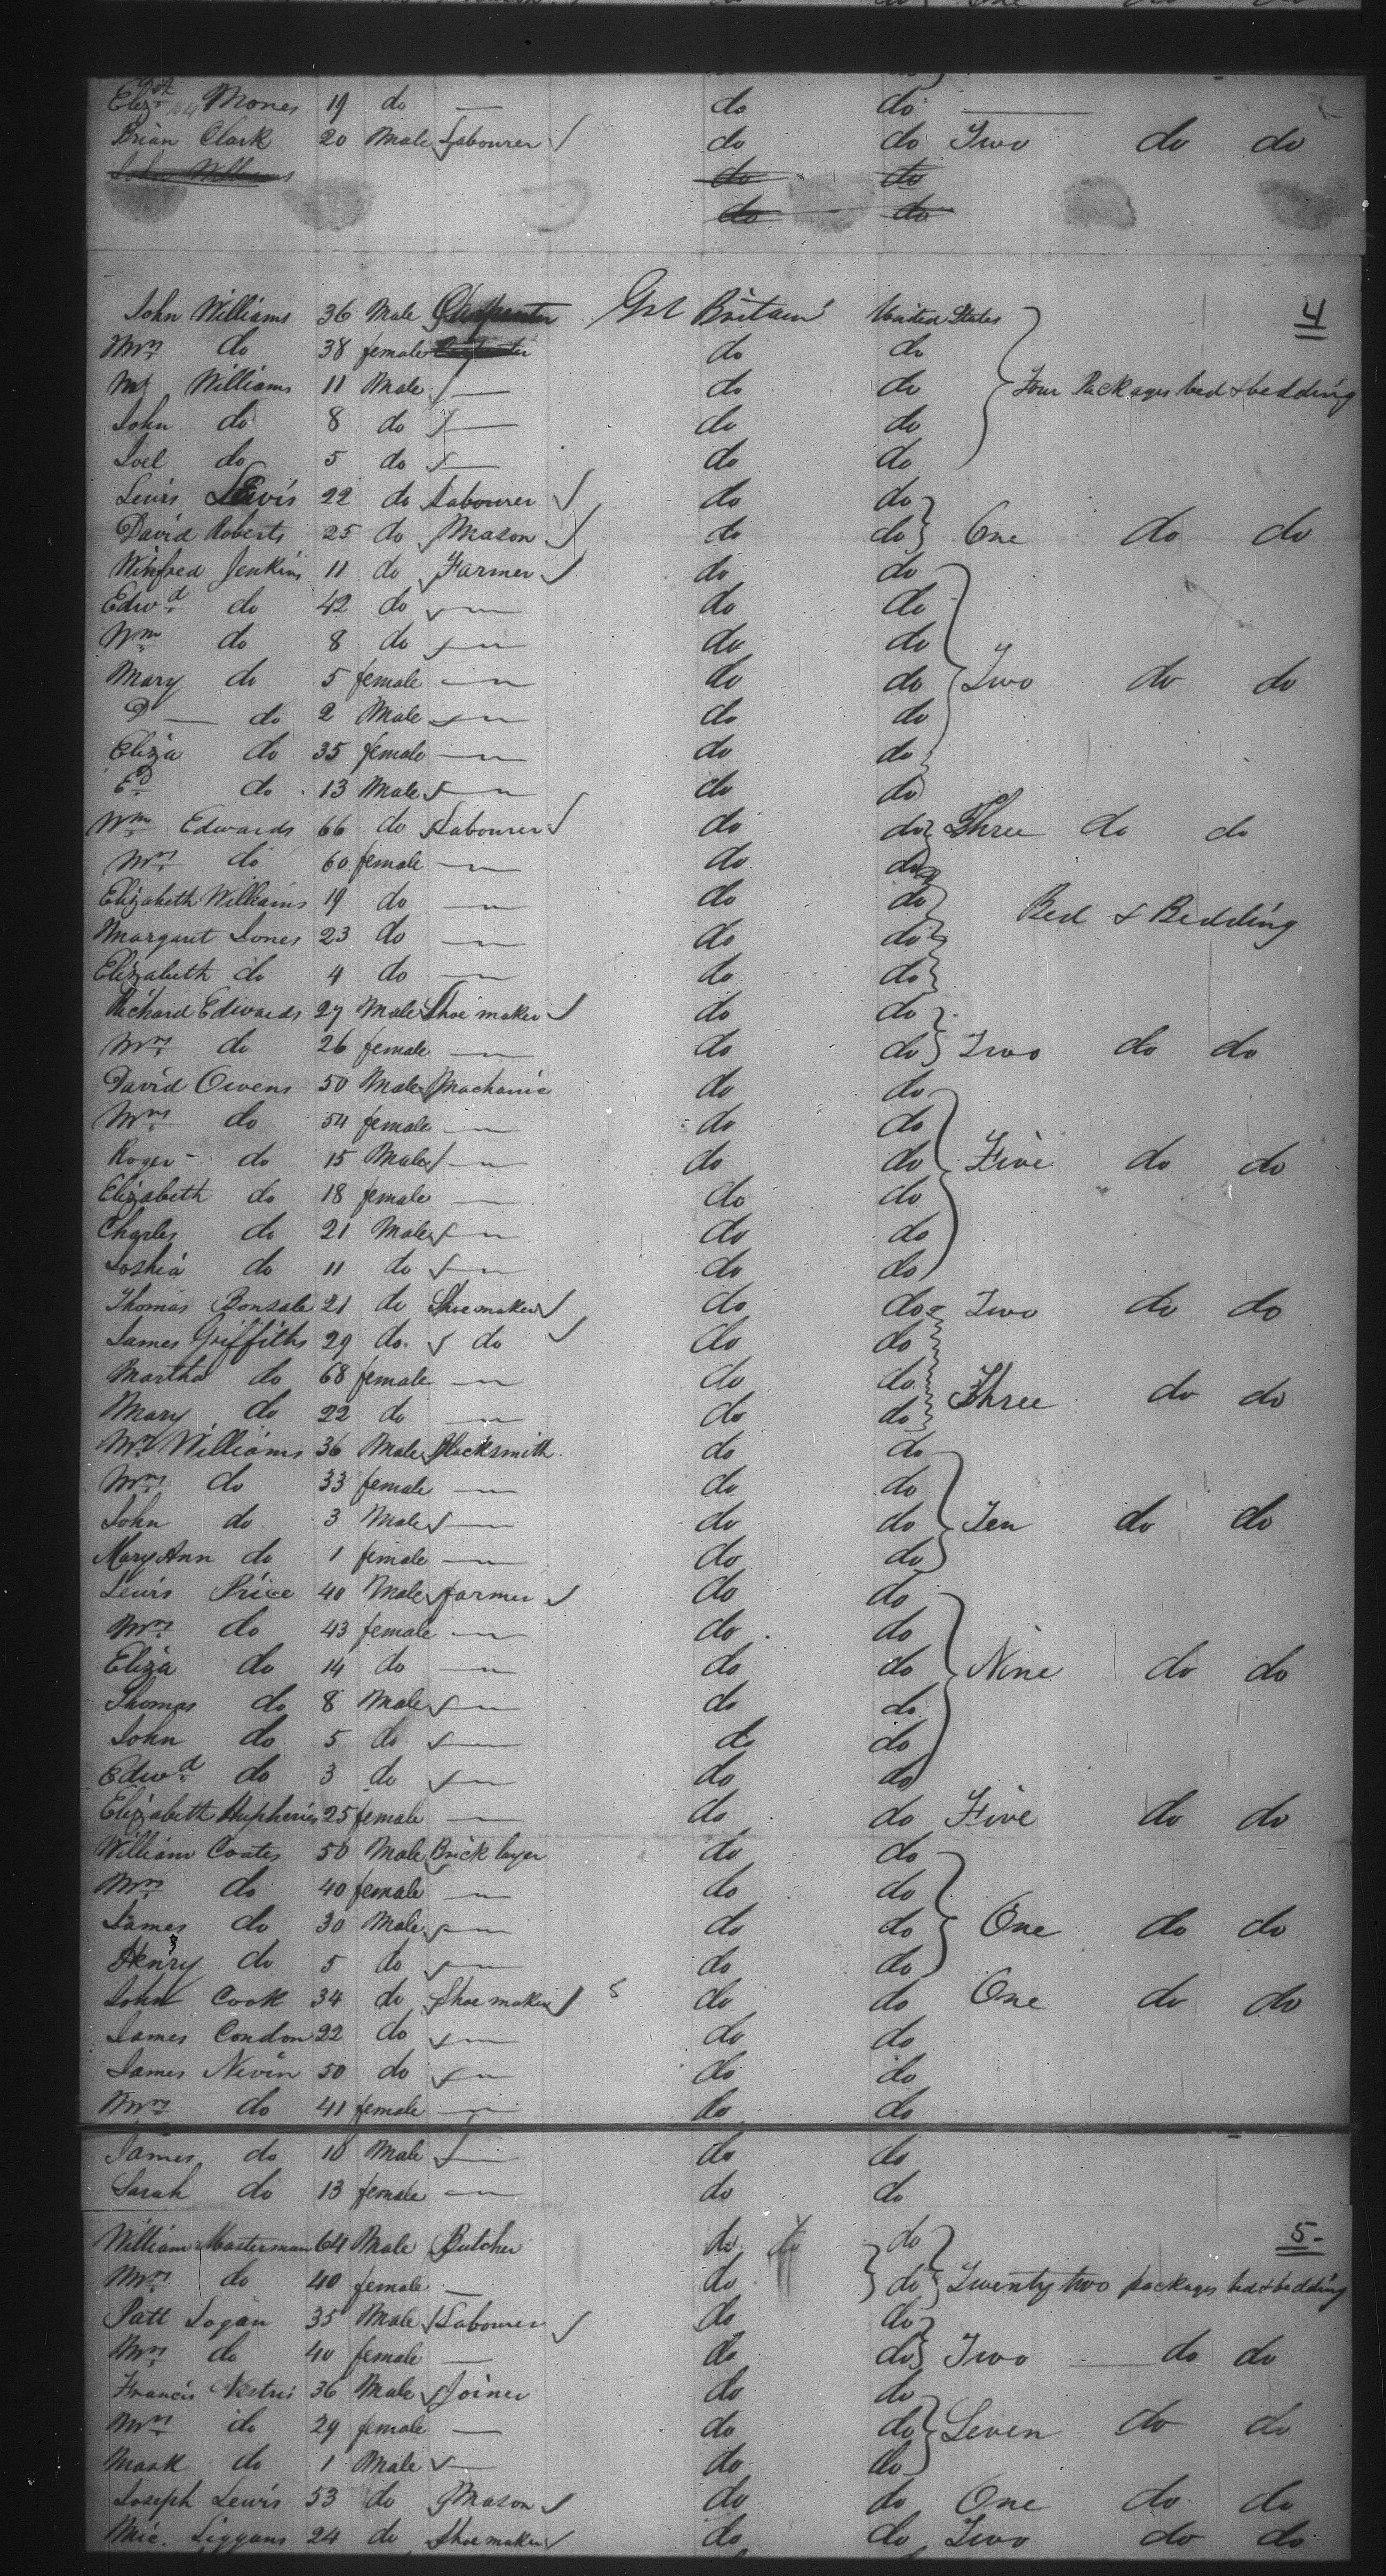 do do One do do
Eliz. Mones 19 do — do do —
Brian Clark 20 Male Labourer do do Two do do
John Williams do do
do do
4
John Williams 36 Male Carpenter Grt Britain United States
Mrs do 38 female do do
Wm Williams 11 Male — do do Four Packages bed & bedding
John do 8 do — do do
Joel do 5 do — do do
Lewis Lewis 22 do Labourer do do
David Roberts 25 do Mason do do One do do
Winfred Jenkins 11 do Farmer do do
Edwd do 42 do — do do
Wm do 8 do — do do
Mary do 5 female — do do Two do do
D — do 2 Male — do do
Eliza do 35 female — do do
Ed do 13 Male — do do
Wm Edwards 66 do Labourer do do Three do do
Mrs do 60 female — do do
Elizabeth Williams 19 do — do do Bed & Bedding
Margaret Jones 23 do — do do
Elizabeth do 4 do — do do
Richard Edwards 27 Male Shoe maker do do
Mrs do 26 female — do do Two do do
David Owens 50 Male Machanic do do
Mrs do 54 female — do do
Roger do 15 Male — do do Five do do
Elizabeth do 18 female — do do
Charles do 21 Male — do do
Joshia do 11 do — do do
Thomas Bonsale 21 do Shoemaker do do Two do do
James Griffiths 29 do do do do
Martha do 68 female — do do Three do do
Mary do 22 do — do do
Wm Williams 36 Male Blacksmith do do
Mrs do 33 female — do do
John do 3 Male — do do Ten do do
Mary Ann do 1 female — do do
Lewis Price 40 Male farmer do do
Mrs do 43 female — do do
Eliza do 14 do — do do Nine do do
Thomas do 8 Male — do do
John do 5 do — do do
Edwd do 3 do — do do
Elizabeth Hupheries 25 female — do do Five do do
William Coates 50 Male Brick layer do do
Mrs do 40 female — do do
James do 30 Male — do do One do do
Henry do 5 do — do do
John Cook 34 do Shoe maker do do One do do
James Condon 22 do — do do
James Nevin 50 do — do do
Mrs do 41 female — do do
James do 10 Male — do do
Sarah do 13 female — do do
5
William Masterman 64 Male Butcher do do
Mrs do 40 female — do do Twenty two packages bed & bedding
Patt Logan 35 Male Labourer do do
Mrs do 40 female — do do Two — do do
Francis 36 Male Joiner do do
Mrs do 29 female — do do Seven do do
Mark do 1 Male — do do
Joseph Lewis 53 do Mason do do One do do
Mic. Liggans 24 do Shoe maker do do Two do do